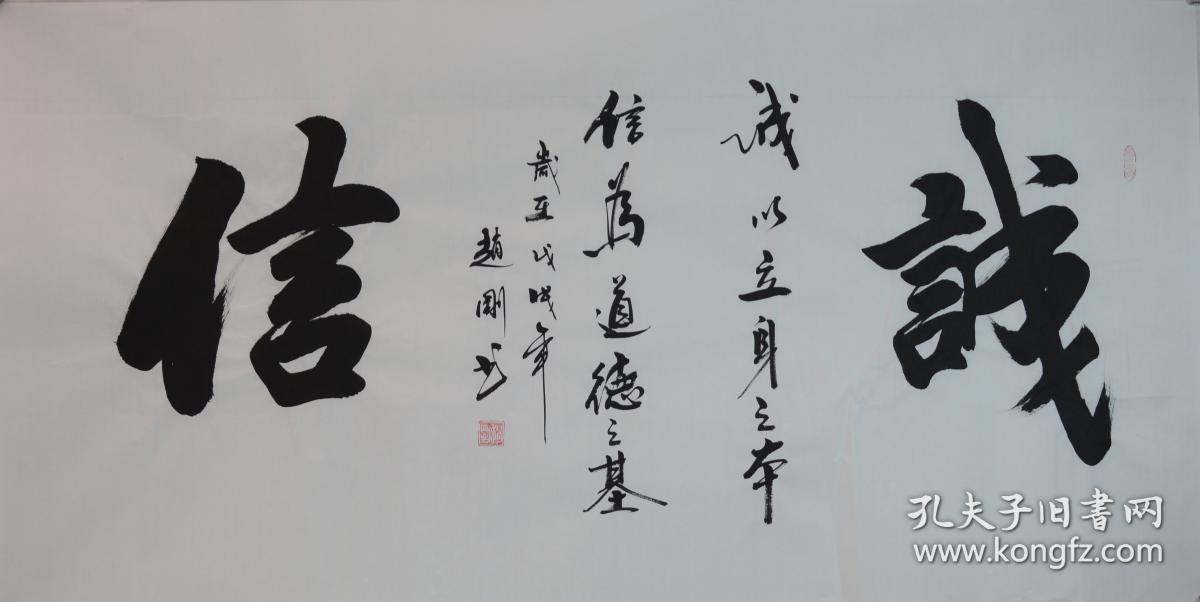 誠
诚以立身之本
信為道德之基
歲在戊戌年
趙剛书
信
孔夫子旧書网
www.kongfz.com